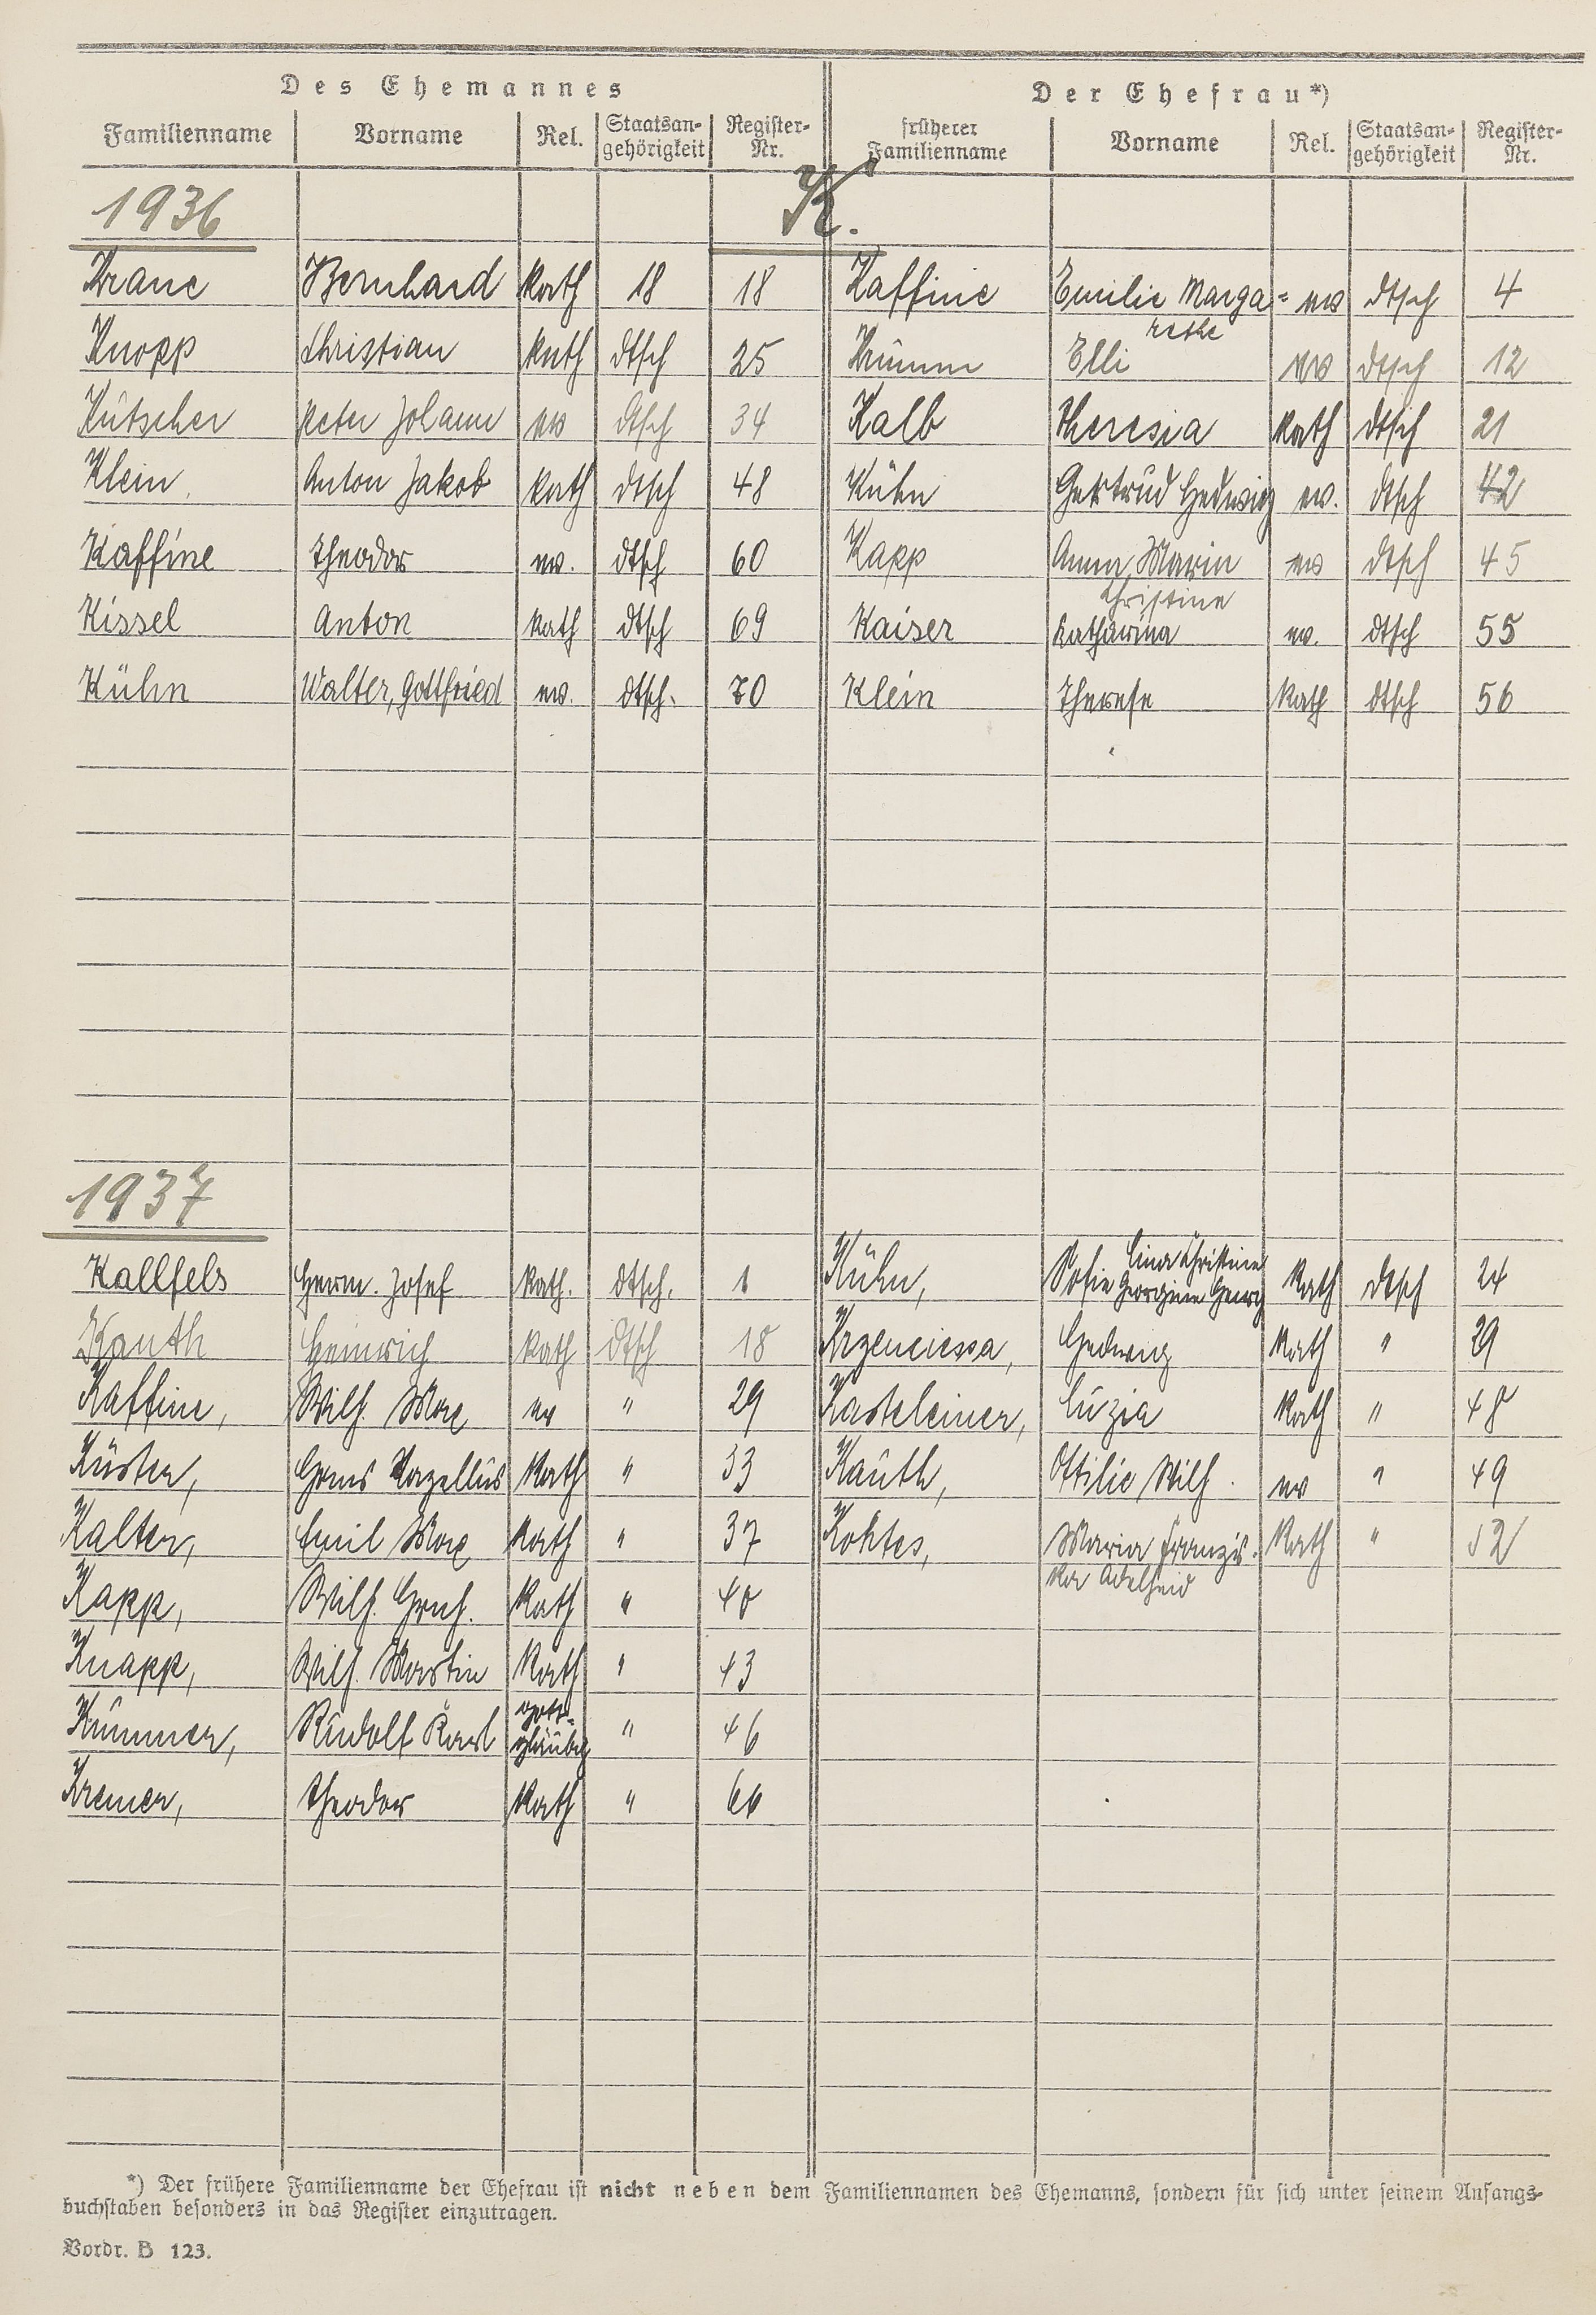 Des Ehemannes Der Ehefrau*)
Familienname Vorname Rel. Staatsan-gehörigkeit Register-Nr. früherer Familienname Vorname Rel. Staatsan-gehörigkeit Register-Nr.
1936 K.
Krane Bernhard Kath 18 18 Kaffine Emilie Marga= ev dtsch 4
rethe
Knopp Christian Kath dtsch 25 Krumm Elli ev dtsch 12
Kutscher Peter Johann ev dtsch 34 Kalb Theresia Kath dtsch 21
Klein Anton Jakob Kath dtsch 48 Kühn Gertrud Hedwig ev. dtsch 42
Kaffine Theodor ev. dtsch 60 Kapp Anna Maria ev dtsch 45
Christine
Kissel Anton Kath dtsch 69 Kaiser Katharina ev. dtsch 55
Kühn Walter, Gottfried ev. dtsch. 70 Klein Therese Kath dtsch 56
1937
Lina Christine
Kallfels Herm. Josef Kath. dtsch. 1 Kühn, Sofie Georgine Georg Kath dtsch 24
Kauth Heinrich Kath dtsch 18 Krzenciessa, Hedwig Kath " 29
Kaffine, Wilh. Max ev " 29 Kasteleiner, Luzia Kath " 48
Küster, Hans Kath " 33 Kauth, Ottilie Wilh. ev " 49
Kalter, Emil Max Kath " 37 Kohtes, Maria Franzis- Kath " 52
ka Adelheid
Kapp, Wilh. Kath " 40
Knapp, Wilh. Martin Kath " 43
gott-
Kummer, Rudolf Karl gläubig " 46
Kremer, Theodor Kath " 66
*) Der frühere Familienname der Ehefrau ist nicht neben dem Familiennamen des Ehemanns, sondern für sich unter seinem Anfangs-
buchstaben besonders in das Register einzutragen.
Vordr. B 123.